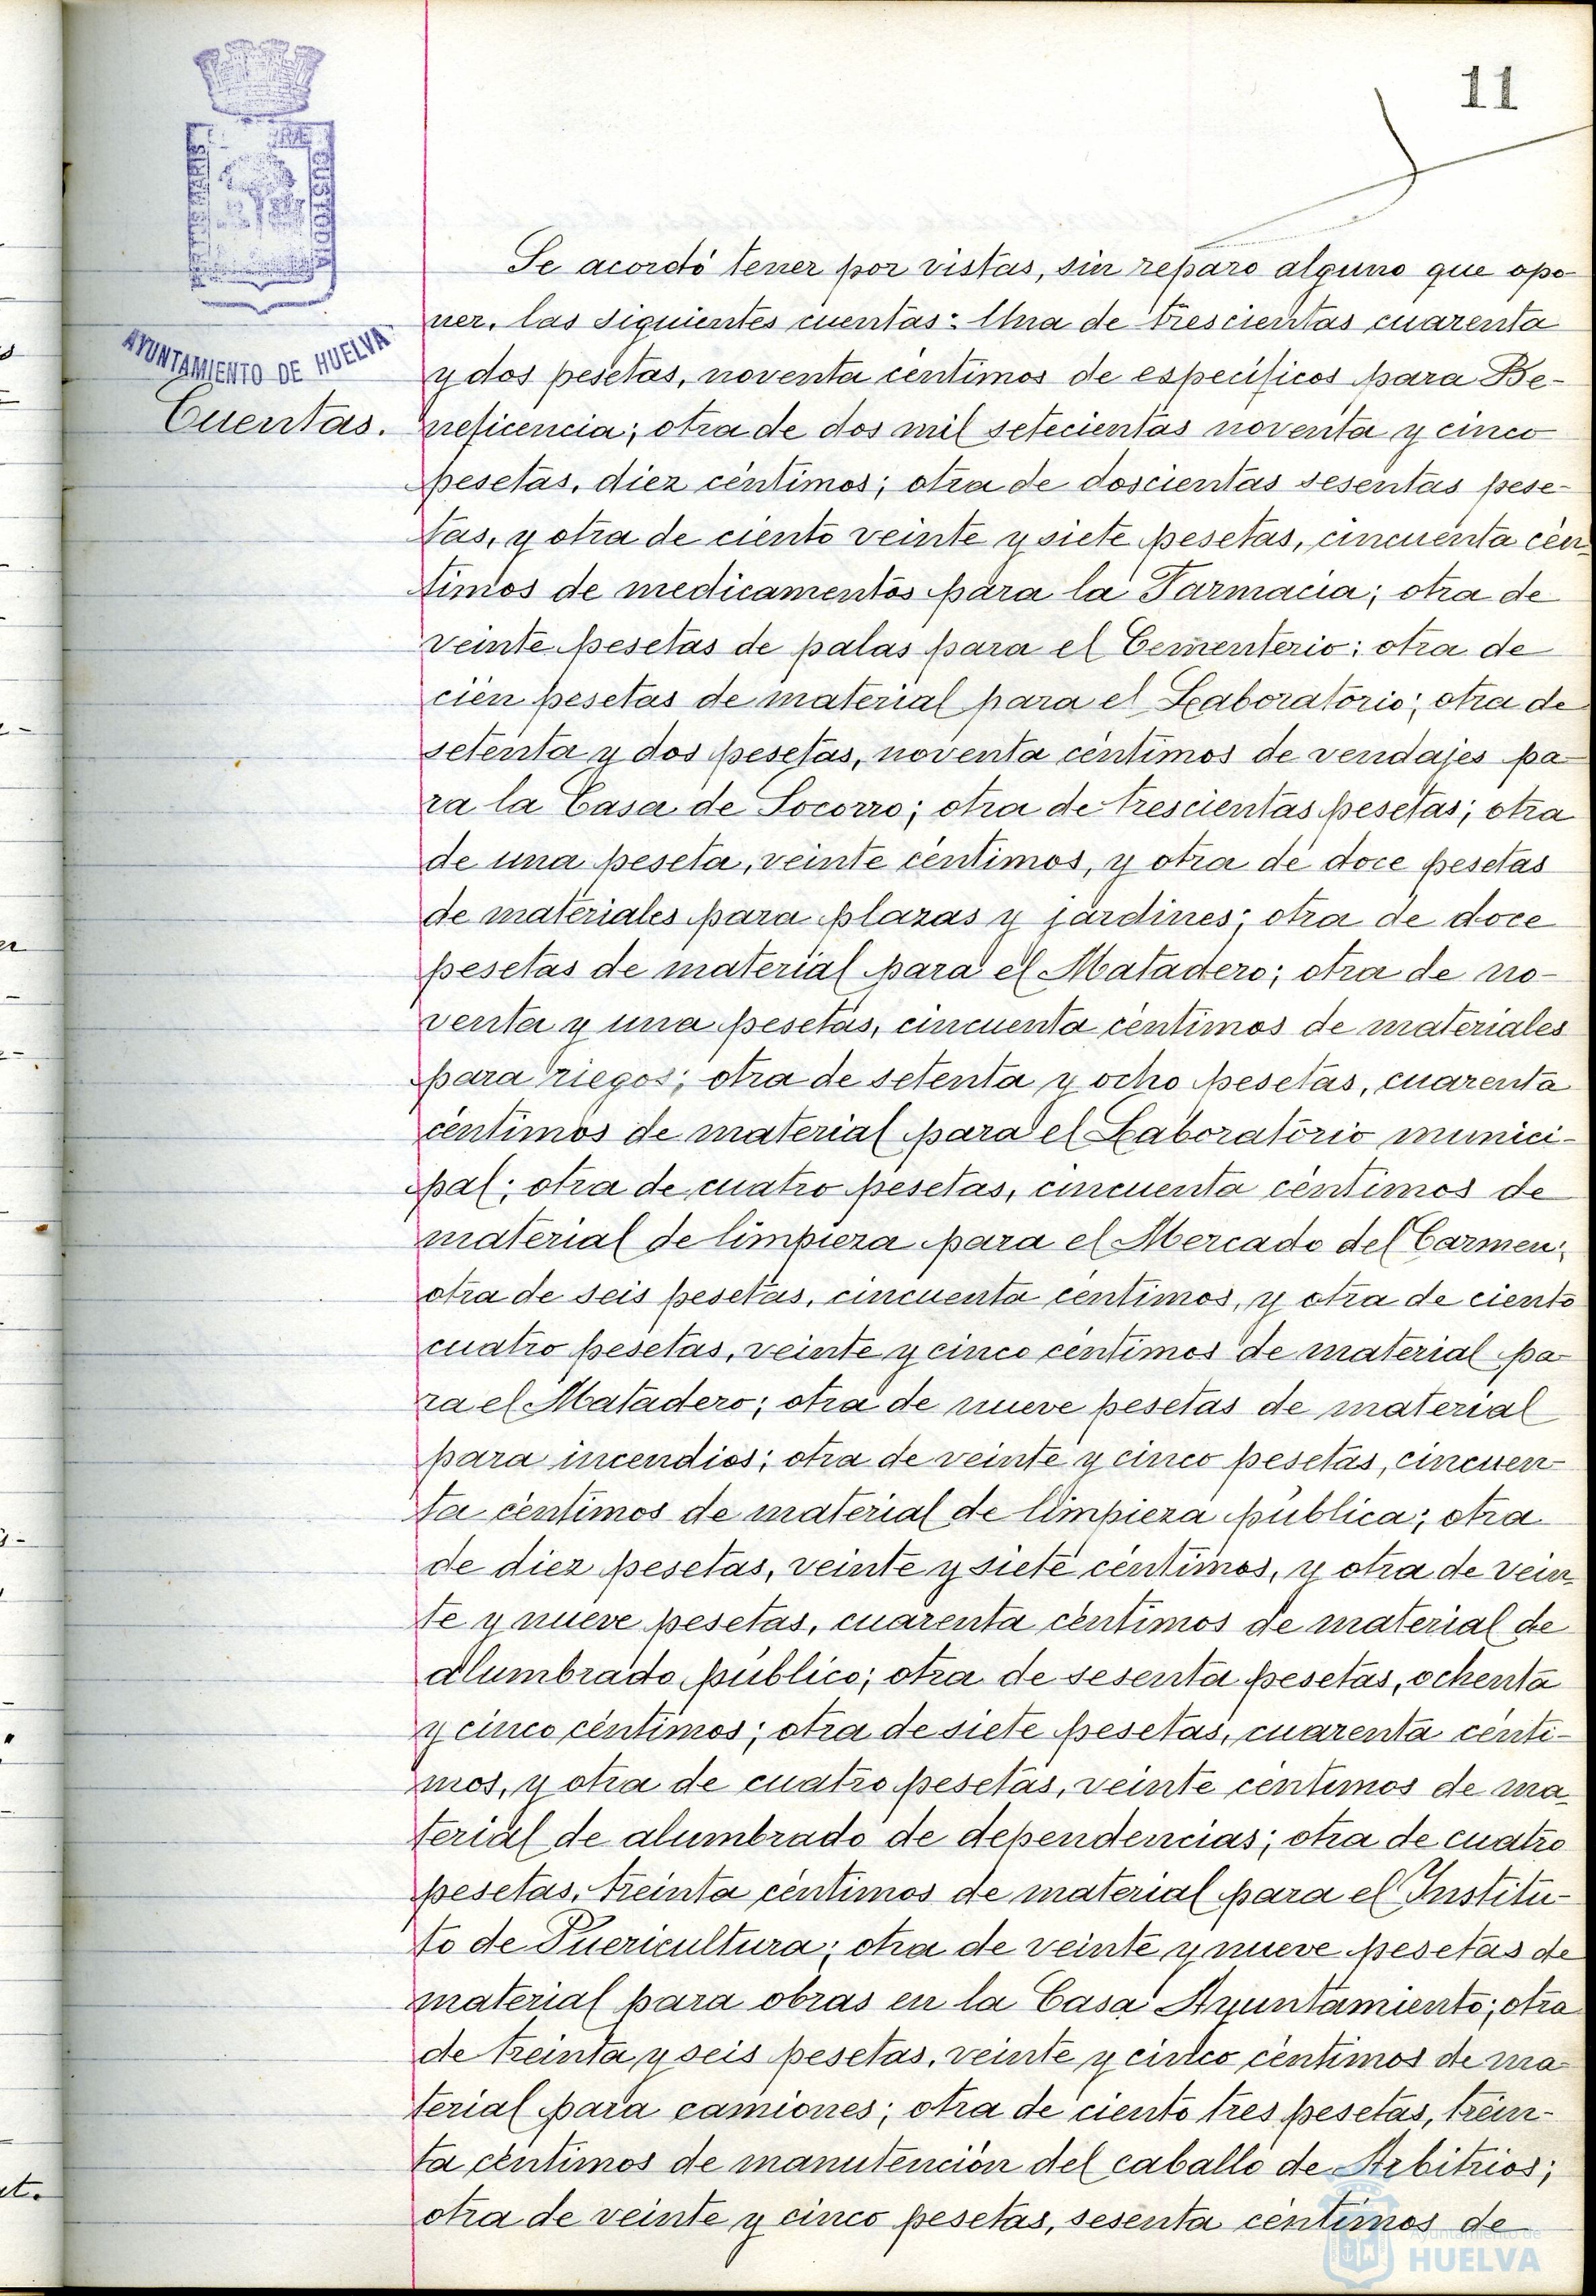 11
PORTUS MARIS
ET TERRAE
CUSTODIA
AYUNTAMIENTO DE HUELVA
Cuentas.
Se acordó tener por vistas, sin reparo alguno que opo-
ner, las siguientes cuentas: Una de trescientas cuarenta
y dos pesetas, noventa céntimos de específicos para Be-
neficencia; otra de dos mil setecientas noventa y cinco
pesetas, diez céntimos; otra de doscientas sesentas pese-
tas, y otra de ciento veinte y siete pesetas, cincuenta cén-
timos de medicamentos para la Farmacia; otra de
veinte pesetas de palas para el Cementerio; otra de
cien pesetas de material para el Laboratorio; otra de
setenta y dos pesetas, noventa céntimos de vendajes pa-
ra la Casa de Socorro; otra de trescientas pesetas; otra
de una peseta, veinte céntimos, y otra de doce pesetas
de materiales para plazas y jardines; otra de doce
pesetas de material para el Matadero; otra de no-
venta y una pesetas, cincuenta céntimos de materiales
para riegos; otra de setenta y ocho pesetas, cuarenta
céntimos de material para el Laboratorio munici-
pal; otra de cuatro pesetas, cincuenta céntimos de
material de limpieza para el Mercado del Carmen;
otra de seis pesetas, cincuenta céntimos, y otra de ciento
cuatro pesetas, veinte y cinco céntimos de material pa-
ra el Matadero; otra de nueve pesetas de material
para incendios; otra de veinte y cinco pesetas, cincuen-
ta céntimos de material de limpieza pública; otra
de diez pesetas, veinte y siete céntimos, y otra de vein-
te y nueve pesetas, cuarenta céntimos de material de
alumbrado público; otra de sesenta pesetas, ochenta
y cinco céntimos; otra de siete pesetas, cuarenta cénti-
mos, y otra de cuatro pesetas, veinte céntimos de ma-
terial de alumbrado de dependencias; otra de cuatro
pesetas, treinta céntimos de material para el Institu-
to de Puericultura; otra de veinte y nueve pesetas de
material para obras en la Casa Ayuntamiento; otra
de treinta y seis pesetas, veinte y cinco céntimos de ma-
terial para camiones; otra de ciento tres pesetas, trein-
ta céntimos de manutención del caballo de Arbitrios;
otra de veinte y cinco pesetas, sesenta céntimos de
Ayuntamiento de
HUELVA